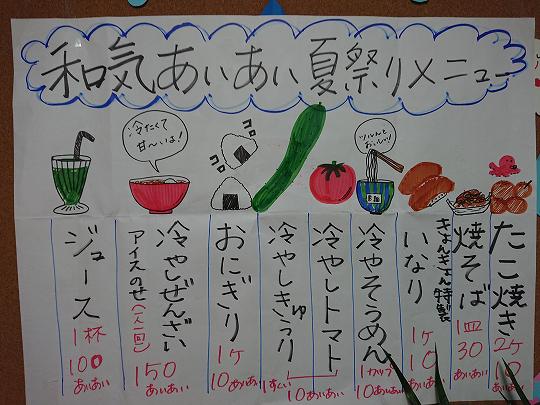 和気あいあい夏祭りメニュー
冷たくて
甘〜いよ!
コロ
コロ
ツルんと
おいしい!
たこ焼き
2ケ
あいあい
焼そば
1皿
30
あいあい
きょんきょん特製
いなり
1ヶ
10
あいあい
冷やそうめん
1カップ
10あいあい
冷やしトマト
冷やしきゅうり
10あいあい
おにぎり
1ケ
10あいあい
冷やしぜんざい
アイスのせ(一人一回)
150
あいあい
ジュース
1杯
100
あいあい